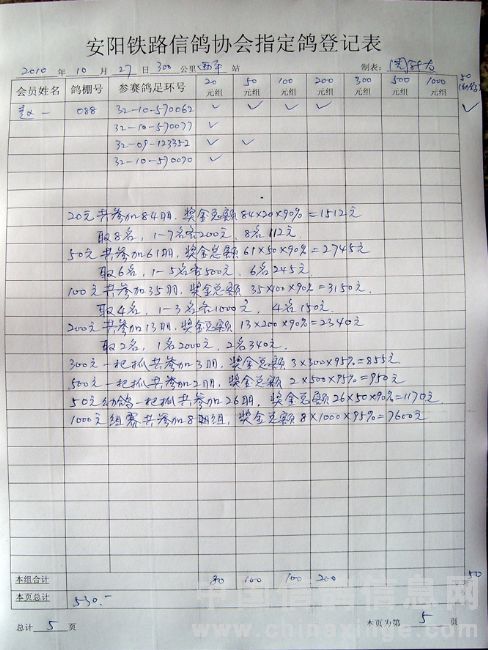 安阳铁路信鸽协会指定鸽登记表
2010 年 10 月 27 日 300 公里 西平 站 制表:
会员姓名 鸽棚号 参赛鸽足环号 20元组 50元组 100元组 200元组 300元组 500元组 1000元组 50
一 088 32-10-590062 ✓ ✓ ✓ ✓ ✓
32-10-590077 ✓
32-09-123352 ✓ ✓
32-10-590070 ✓
20元共参加84羽,奖金总额84×20×90%=1512元
取8名,1-7名各200元,8名112元
50元共参加61羽,奖金总额61×50×90%=2745元
取6名,1-5名各500元,6名245元
100元共参加35羽,奖金总额35×100×90%=3150元
取4名,1-3名各1000元,4名150元
200元共参加13羽,奖金总额13×200×90%=2340元
取2名,1名2000元,2名340元
300元一把抓共参加3羽,奖金总额3×300×95%=855元
500元一把抓共参加2羽,奖金总额2×500×95%=950元
50元幼鸽一把抓共参加26羽,奖金总额26×50×90%=1170元
1000元组赛共参加8羽组,奖金总额8×1000×95%=7600元
本组合计 80 100 100 200 50
本页总计 530.-
总计 5 页 本页为第 5 页
中国信鸽信息网
www.chinaxinge.com